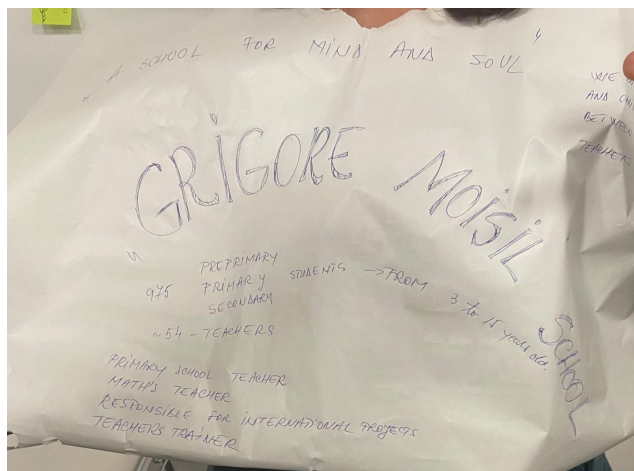 " A SCHOOL FOR MIND AND SOUL "
WE
AND
BETWEEN
TEACHERS
GRIGORE MOISIL SCHOOL
PREPRIMARY
975 PRIMARY STUDENTS → FROM 3 to 15 years old.
SECONDARY
~54 - TEACHERS
PRIMARY SCHOOL TEACHER
MATH'S TEACHER
RESPONSIBLE FOR INTERNATIONAL PROJECTS
TEACHERS TRAINER